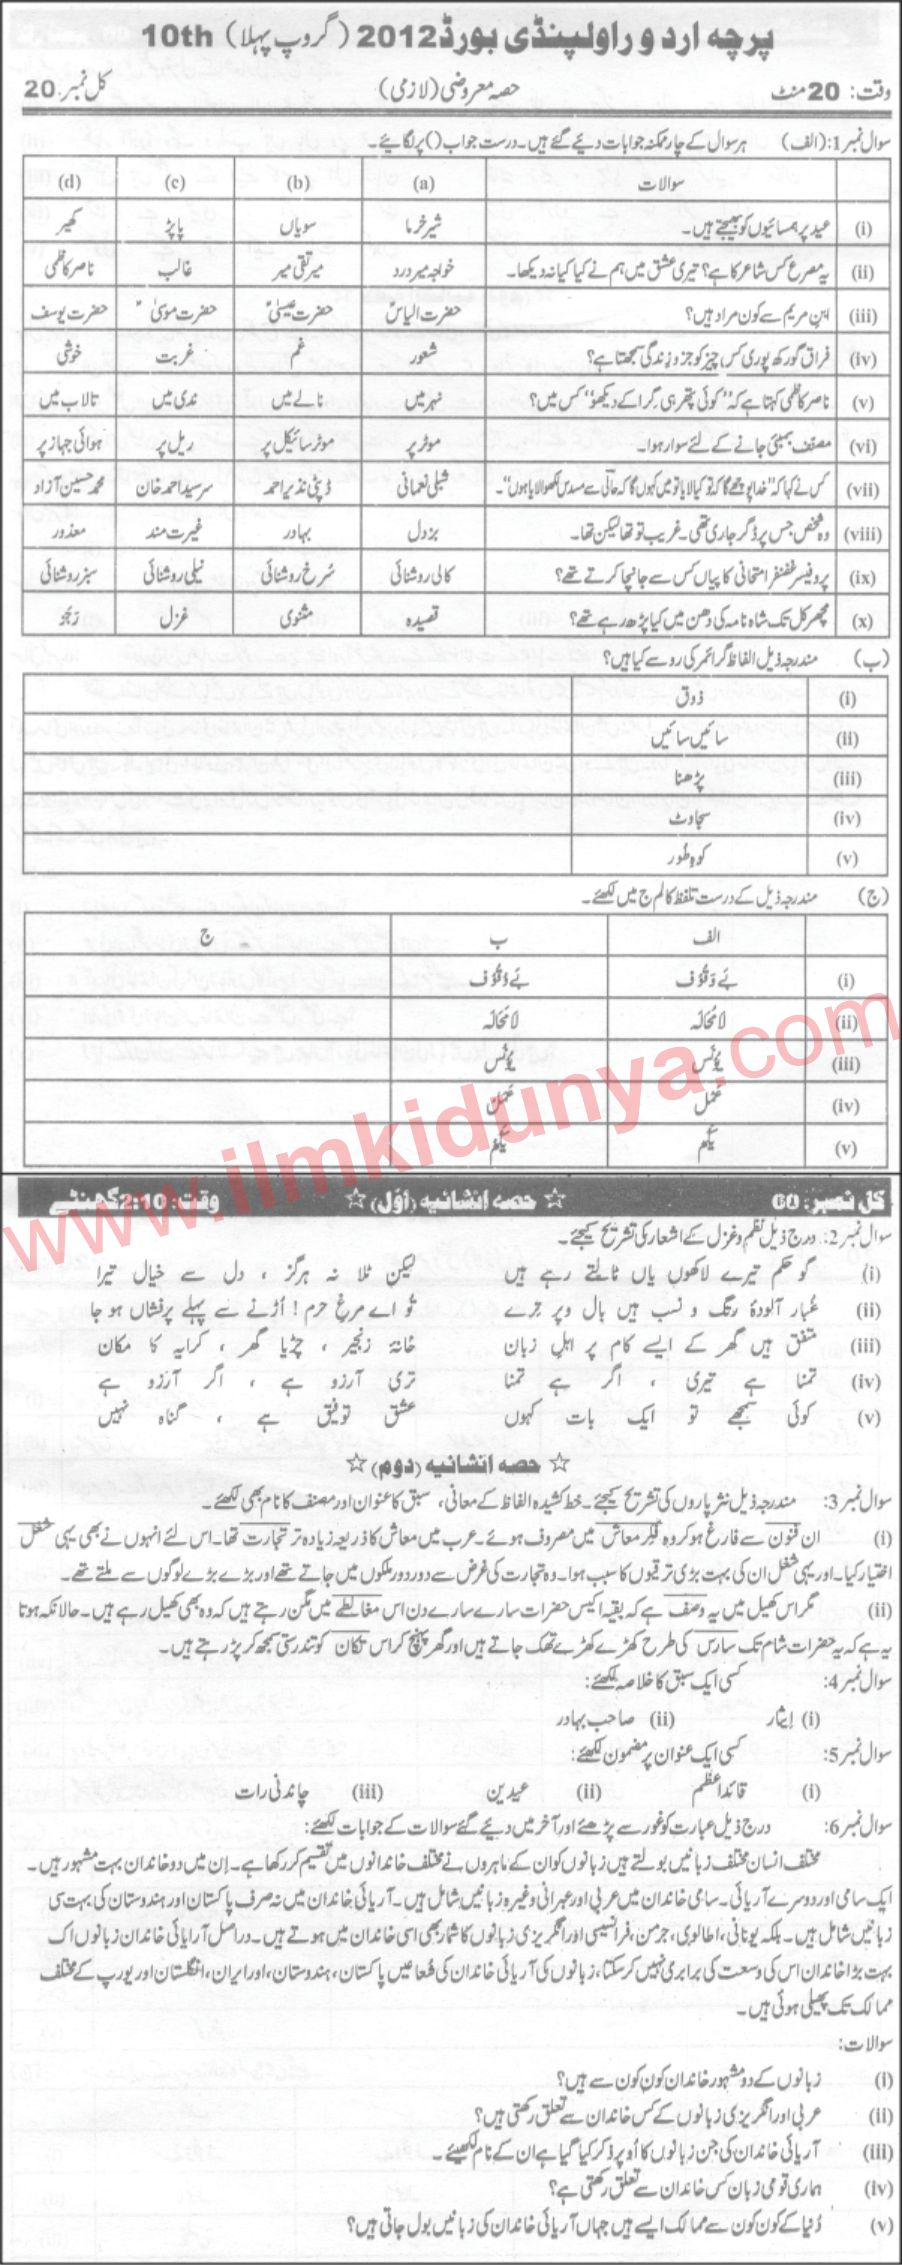 پرچہ اردو راولپنڈی بورڈ 2012 (گروپ پہلا) 10th
وقت: 20 منٹ حصہ معروضی (لازمی) کل نمبر: 20
سوال نمبر 1: (الف) ہر سوال کے چار ممکنہ جوابات دیئے گئے ہیں۔ درست جواب () پر لگائیے۔
سوالات (a) (b) (c) (d)
(i) عید پر ہمسائیوں کو بھیجتے ہیں۔ شیر خرما سویاں پاپڑ کھیر
(ii) یہ مصرع کس شاعر کا ہے؟ تیری عشق میں ہم نے کیا کیا نہ دیکھا۔ خواجہ میر درد میر تقی میر غالب ناصر کاظمی
(iii) ابنِ مریم سے کون مراد ہیں؟ حضرت الیاسؑ حضرت عیسیٰؑ حضرت موسیٰؑ حضرت یوسف
(iv) فراق گورکھ پوری کس چیز کو جزو زندگی سمجھتا ہے؟ شعور غم غربت خوشی
(v) ناصر کاظمی کہتا ہے کہ "کوئی پتھر ہی گرا کے دیکھو" کس میں؟ نہر میں نالے میں ندی میں تالاب میں
(vi) مصنف بمبئی جانے کے لئے سوار ہوا۔ موٹر پر موٹر سائیکل پر ریل پر ہوائی جہاز پر
(vii) کس نے کہا کہ "خدا پوچھے گا کہ تو کیا لایا تو میں کہوں گا کہ حالی سے مسدس لکھوا لایا ہوں"۔ شبلی نعمانی ڈپٹی نذیر احمد سر سید احمد خان محمد حسین آزاد
(viii) وہ شخص جس پر ڈگر جاری تھی۔ غریب تو تھا لیکن تھا۔ بزدل بہادر غیرت مند معذور
(ix) پروفیسر غضنفر امتحانی کاپیاں کس سے جانچا کرتے تھے؟ کالی روشنائی سُرخ روشنائی نیلی روشنائی سبز روشنائی
(x) مچھر کل تک شاہ نامہ کی دھن میں کیا پڑھ رہے تھے؟ قصیدہ مثنوی غزل رَجَز
(ب) مندرجہ ذیل الفاظ گرائمر کی رو سے کیا ہیں؟
(i) ذوق
(ii) سائیں سائیں
(iii) پڑھنا
(iv) سجاوٹ
(v) کوہِ طور
(ج) مندرجہ ذیل کے درست تلفظ کالم ج میں لکھئے۔
الف ب ج
(i) بے وقوف بے وقوف
(ii) لا محالہ لا محالہ
(iii) یونس یونس
(iv) عمل عمل
(v) یکم یکم
www.ilmkidunya.com
کل نمبر: 60 ☆ حصہ انشائیہ (اوّل) ☆ وقت: 2:10 گھنٹے
سوال نمبر 2: درج ذیل نظم و غزل کے اشعار کی تشریح کیجئے۔
(i) گو حکم تیرے لاکھوں یاں ٹالتے رہے ہیں لیکن ٹلا نہ ہرگز ، دل سے خیال تیرا
(ii) غبار آلودۂ رنگ و نسب ہیں بال و پر ترے تُو اے مرغِ حرم ! اُڑنے سے پہلے پرفشاں ہو جا
(iii) متفق ہیں گھر کے ایسے کام پر اہلِ زبان خانۂ زنجیر ، چڑیا گھر ، کرایہ کا مکان
(iv) تمنا ہے تیری ، اگر ہے تمنا تری آرزو ہے ، اگر آرزو ہے
(v) کوئی سمجھے تو ایک بات کہوں عشق توفیق ہے ، گناہ نہیں
☆ حصہ انشائیہ (دوم) ☆
سوال نمبر 3: مندرجہ ذیل نثر پاروں کی تشریح کیجئے۔ خط کشیدہ الفاظ کے معانی، سبق کا عنوان اور مصنف کا نام بھی لکھئے۔
(i) ان فنون سے فارغ ہو کر وہ فکر معاش میں مصروف ہوئے۔ عرب میں معاش کا ذریعہ زیادہ تر تجارت تھا۔ اس لئے انہوں نے بھی یہی شغل
اختیار کیا۔ اور یہی شغل ان کی بہت بڑی ترقیوں کا سبب ہوا۔ وہ تجارت کی غرض سے دور دور ملکوں میں جاتے تھے اور بڑے بڑے لوگوں سے ملتے تھے۔
(ii) مگر اس کھیل میں یہ وصف ہے کہ بقیہ اکیس حضرات سارے سارے دن اس مغالطے میں مگن رہتے ہیں کہ وہ بھی کھیل رہے ہیں۔ حالانکہ ہوتا
یہ ہے کہ یہ حضرات شام تک سارس کی طرح کھڑے کھڑے تھک جاتے ہیں اور گھر پہنچ کر اس تکان کو تندرستی سمجھ کر پڑ رہتے ہیں۔
سوال نمبر 4: کسی ایک سبق کا خلاصہ لکھئے:
(i) ایثار (ii) صاحب بہادر
سوال نمبر 5: کسی ایک عنوان پر مضمون لکھئے:
(i) قائد اعظم (ii) عیدین (iii) چاندنی رات
سوال نمبر 6: درج ذیل عبارت کو غور سے پڑھئے اور آخر میں دیئے گئے سوالات کے جوابات لکھئے:
مختلف انسان مختلف زبانیں بولتے ہیں زبانوں کو ان کے ماہروں نے مختلف خاندانوں میں تقسیم کر رکھا ہے۔ اِن میں دو خاندان بہت مشہور ہیں۔
ایک سامی اور دوسرے آریائی۔ سامی خاندان میں عربی اور عبرانی وغیرہ زبانیں شامل ہیں۔ آریائی خاندان میں نہ صرف پاکستان اور ہندوستان کی بہت سی
زبانیں شامل ہیں۔ بلکہ یونانی، اطالوی، جرمن، فرانسیسی اور انگریزی زبانوں کا شمار بھی اسی خاندان میں ہوتے ہیں۔ دراصل آرایائی خاندان زبانوں اک
بہت بڑا خاندان اس کی وسعت کی برابری نہیں کر سکتا، زبانوں کی آریائی خاندان کی شعاعیں پاکستان، ہندوستان، اور ایران، انگلستان اور یورپ کے مختلف
ممالک تک پھیلی ہوئی ہیں۔
سوالات:
(i) زبانوں کے دو مشہور خاندان کون کون سے ہیں؟
(ii) عربی اور انگریزی زبانوں کے کس خاندان سے تعلق رکھتی ہیں؟
(iii) آریائی خاندان کی جن زبانوں کا اُوپر ذکر کیا گیا ہے ان کے نام لکھیئے۔
(iv) ہماری قومی زبان کس خاندان سے تعلق رکھتی ہے؟
(v) دُنیا کے کون کون سے ممالک ایسے ہیں جہاں آریائی خاندان کی زبانیں بول جاتی ہیں؟